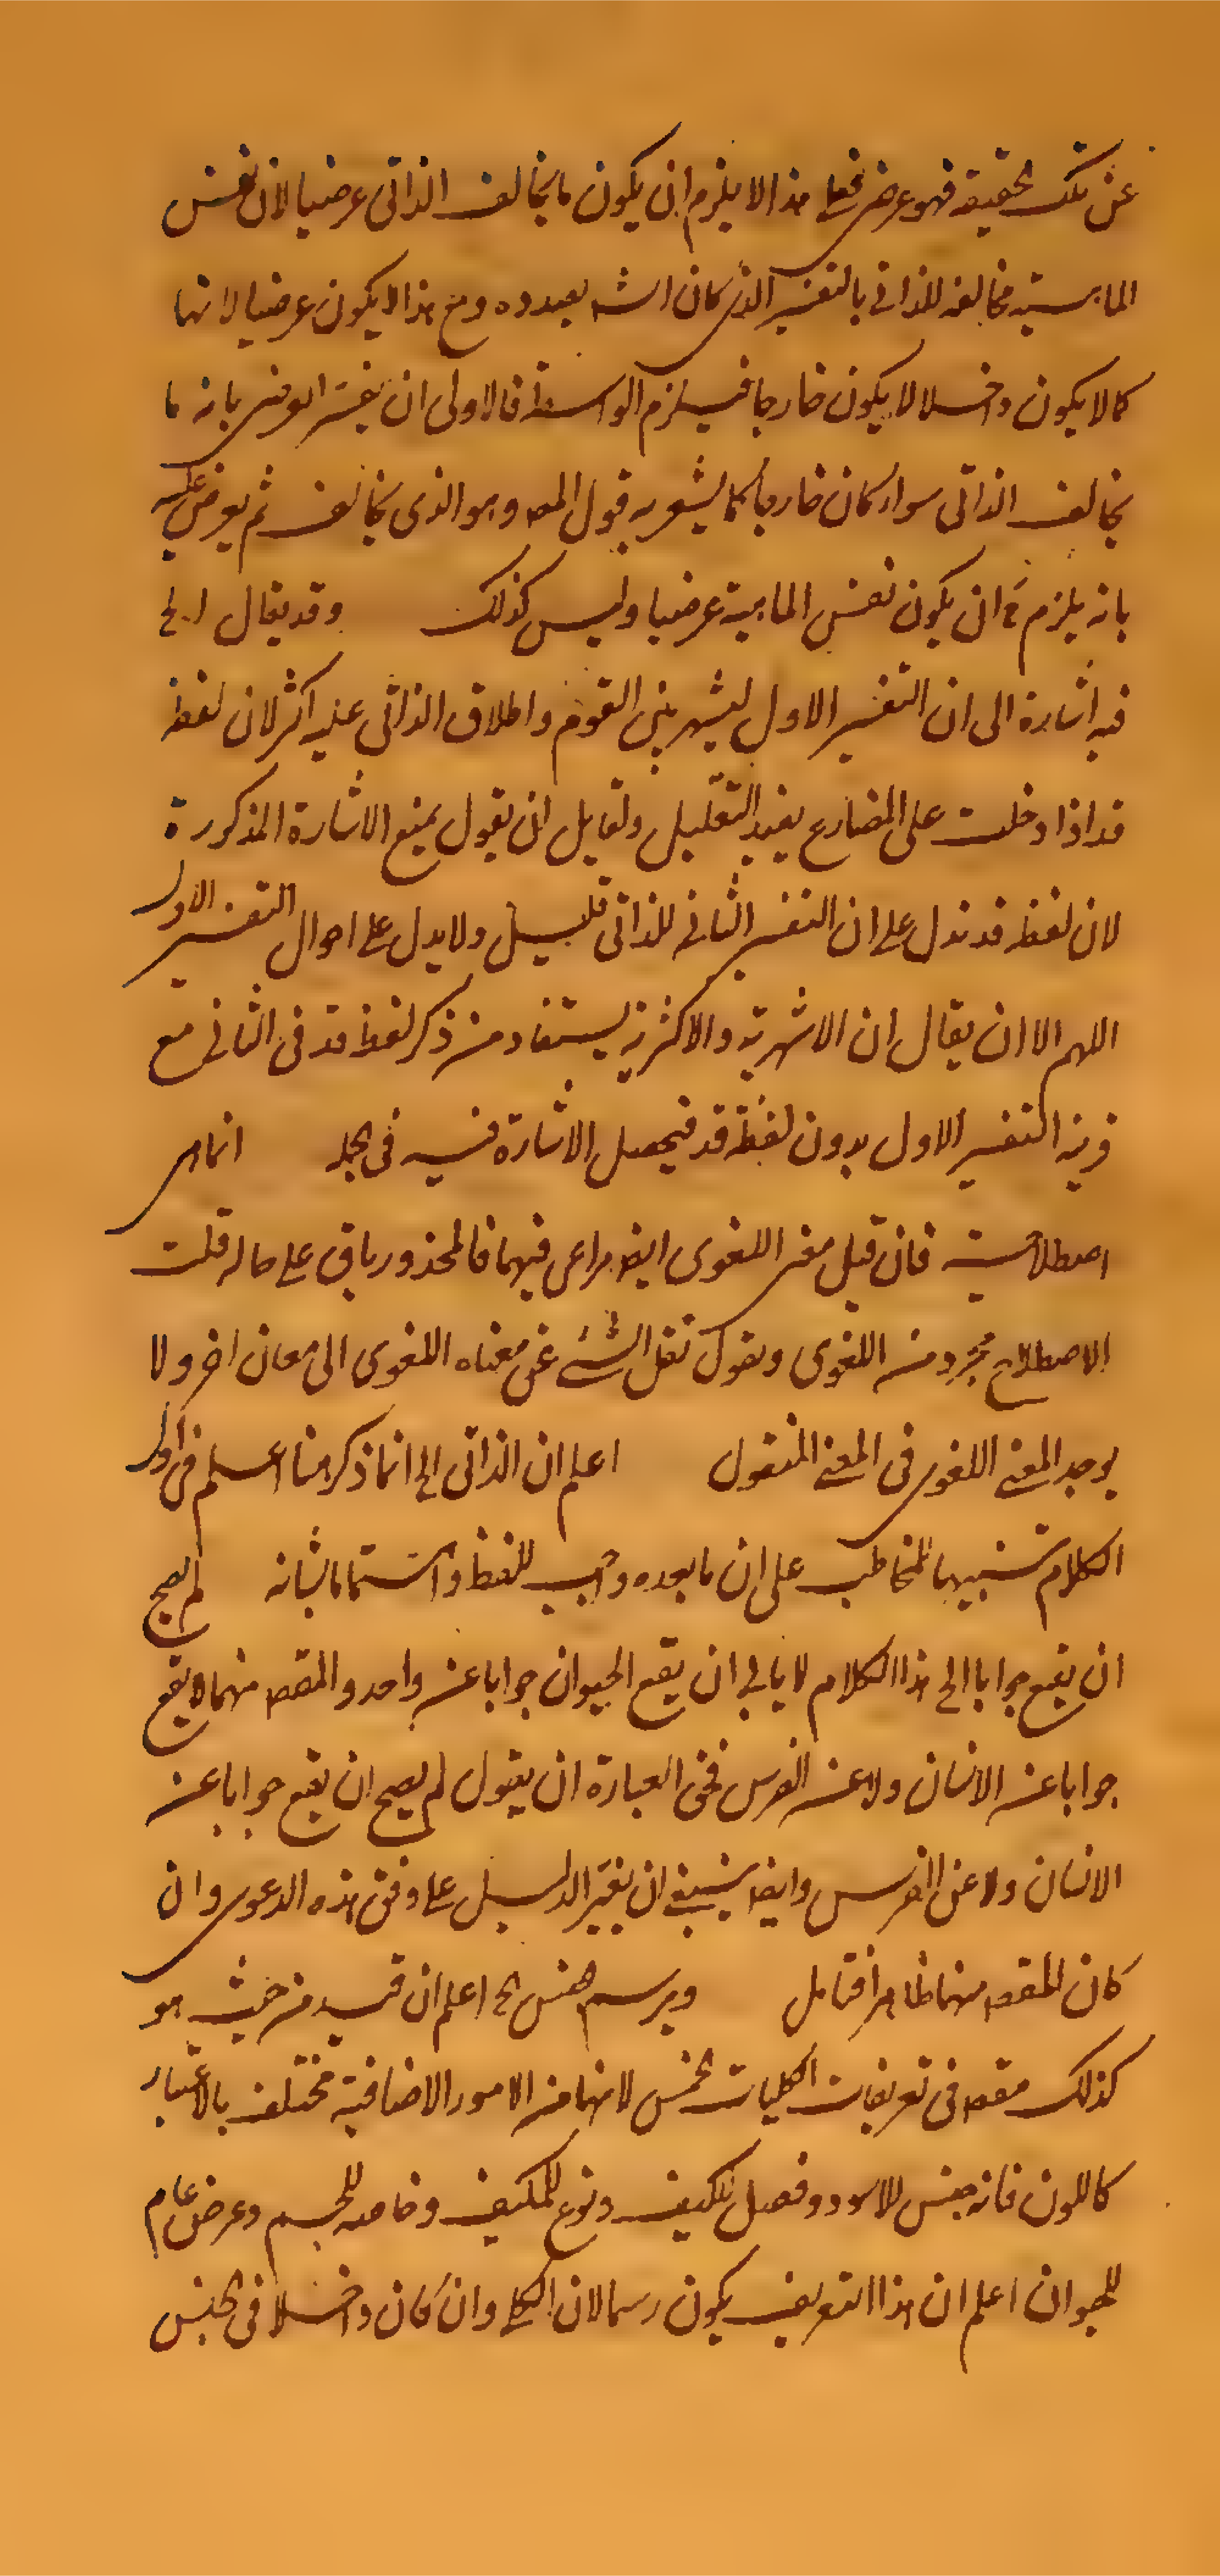 عن تلك الحقيقة فهو عرضي فعلى هذا لا يلزم ان يكون ما يخالف الذاتي عرضيا لان نفس
الماهية مخالفة للذاتي بالتفسير الذي كان الش بصدده ومع هذا لا يكون عرضيا لانها
كما لا يكون داخلا لا يكون خارجا فيلزم الواسطة فالاولى ان يفسر العرضي بانه ما
يخالف الذاتي سواء كان خارجا كما يشعر به قول المص وهو الذي يخالف ثم يعرض عليه
بانه يلزم ح ان يكون نفس الماهية عرضيا وليس كذلك وقد يقال الخ
فيه اشارة الى ان التفسير الاول ليشهر بين القوم واطلاق الذاتي عليه اكثر لان لفظ
قد اذا دخلت على المضارع يفيد التقليل ولقايل ان يقول يمنع الاشارة المذكورة
لان لفظ قد تدل على ان التفسير الثاني للذاتي قليل ولا يدل على احوال التفسير الاول
اللهم الا ان يقال ان الاشهرية والاكثرية يستفاد من ذكر لفظ قد في الثاني مع
قرينة التفسير الاول بدون لفظة قد فيحصل الاشارة فيه في الجملة انما هي
اصطلاحية فان قيل معنى اللغوي ايضا مراعى فيهما فالمحذور باق على حاله قلت
الاصطلاح مجرد من اللغوي ونقول نقل الشيء عن معناه اللغوي الى معان اخر ولا
يوجد المعنى اللغوي في المعنى المنقول اعلم ان الذاتي الخ انما ذكر هنا اعلم في اول
الكلام تنبيها للمخاطب على ان ما بعده واجب للحفظ واهتماما بشانه لم يصح
ان يقع جوابا الخ هذا الكلام لا يابى ان يقع الحيوان جوابا عن واحد والمقص منهما لا يقع
جوابا عن الانسان ولا عن الفرس فحق العبارة ان يقول لم يصح ان يقع جوابا عن
الانسان ولا عن الفرس وايضا ينبغي ان يغير الدليل على وفق هذه الدعوى وان
كان المقص منهما ظاهرا فتامل ويرسم الجنس الخ اعلم ان قيد من حيث هو
كذلك مقص في تعريفات الكليات الخمس لانها من الامور الاضافية مختلف بالاعتبار
كاللون فانه جنس للاسود وفصل للكيف ونوع للمكيف وخاصه للجسم وعرض عام
للحيوان اعلم ان هذا التعريف يكون رسما لان الكلي وان كان داخلا في الجنس